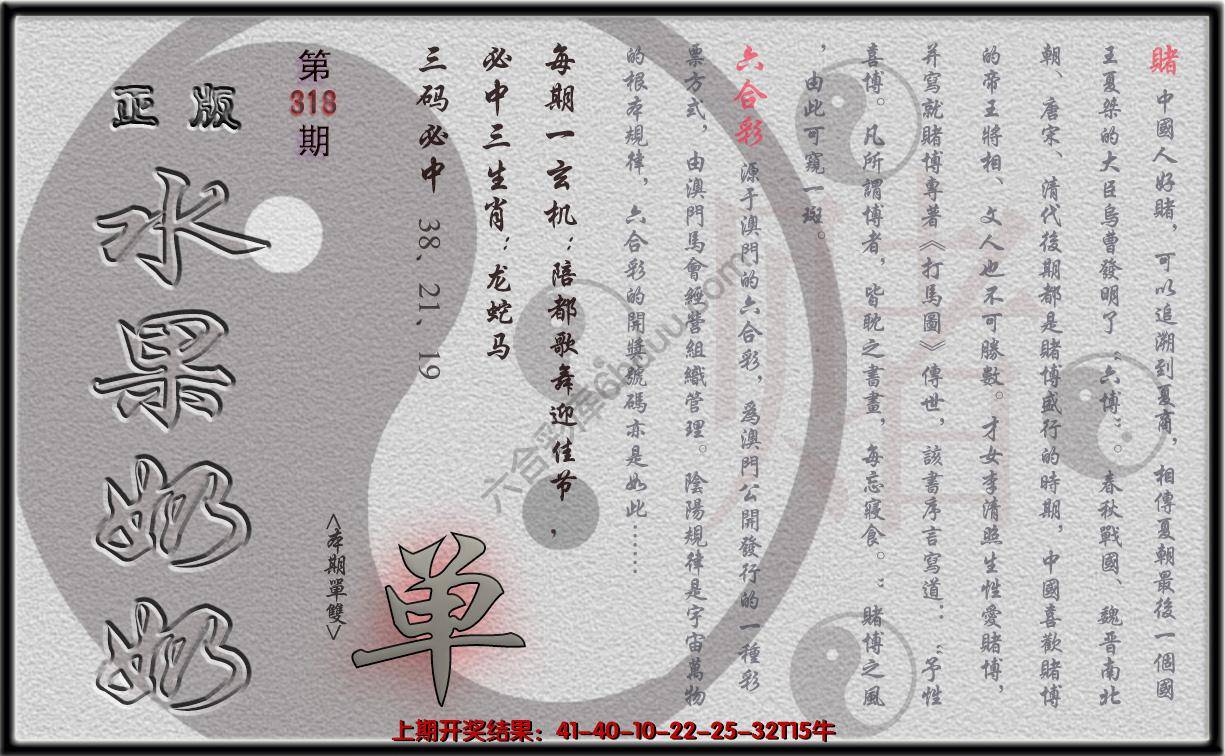 賭 中國人好賭，可以追溯到夏商，相傳夏朝最後一個國
王夏桀的大臣烏曹發明了“六博”。春秋戰國、魏晋南北
朝、唐宋、清代後期都是賭博盛行的時期，中國喜歡賭博
的帝王將相、文人也不可勝數。才女李清照生性愛賭博，
并寫就賭博專著《打馬圖》傳世，該書序言寫道：“予性
喜博。凡所謂博者，皆耽之書畫，每忘寢食。”賭博之風
，由此可窺一斑。
六合彩 源于澳門的六合彩，爲澳門公開發行的一種彩
票方式，由澳門馬會經營組織管理。陰陽規律是宇宙萬物
的根本規律，六合彩的開獎號碼亦是如此……
每期一玄机：陪都歌舞迎佳节，
必中三生肖：龙蛇马
三码必中 38、21、19
第
318
期
正版
水果奶奶
<本期單雙>
单
赌
六合彩库6huuu.com
上期开奖结果：41-40-10-22-25-32T15牛